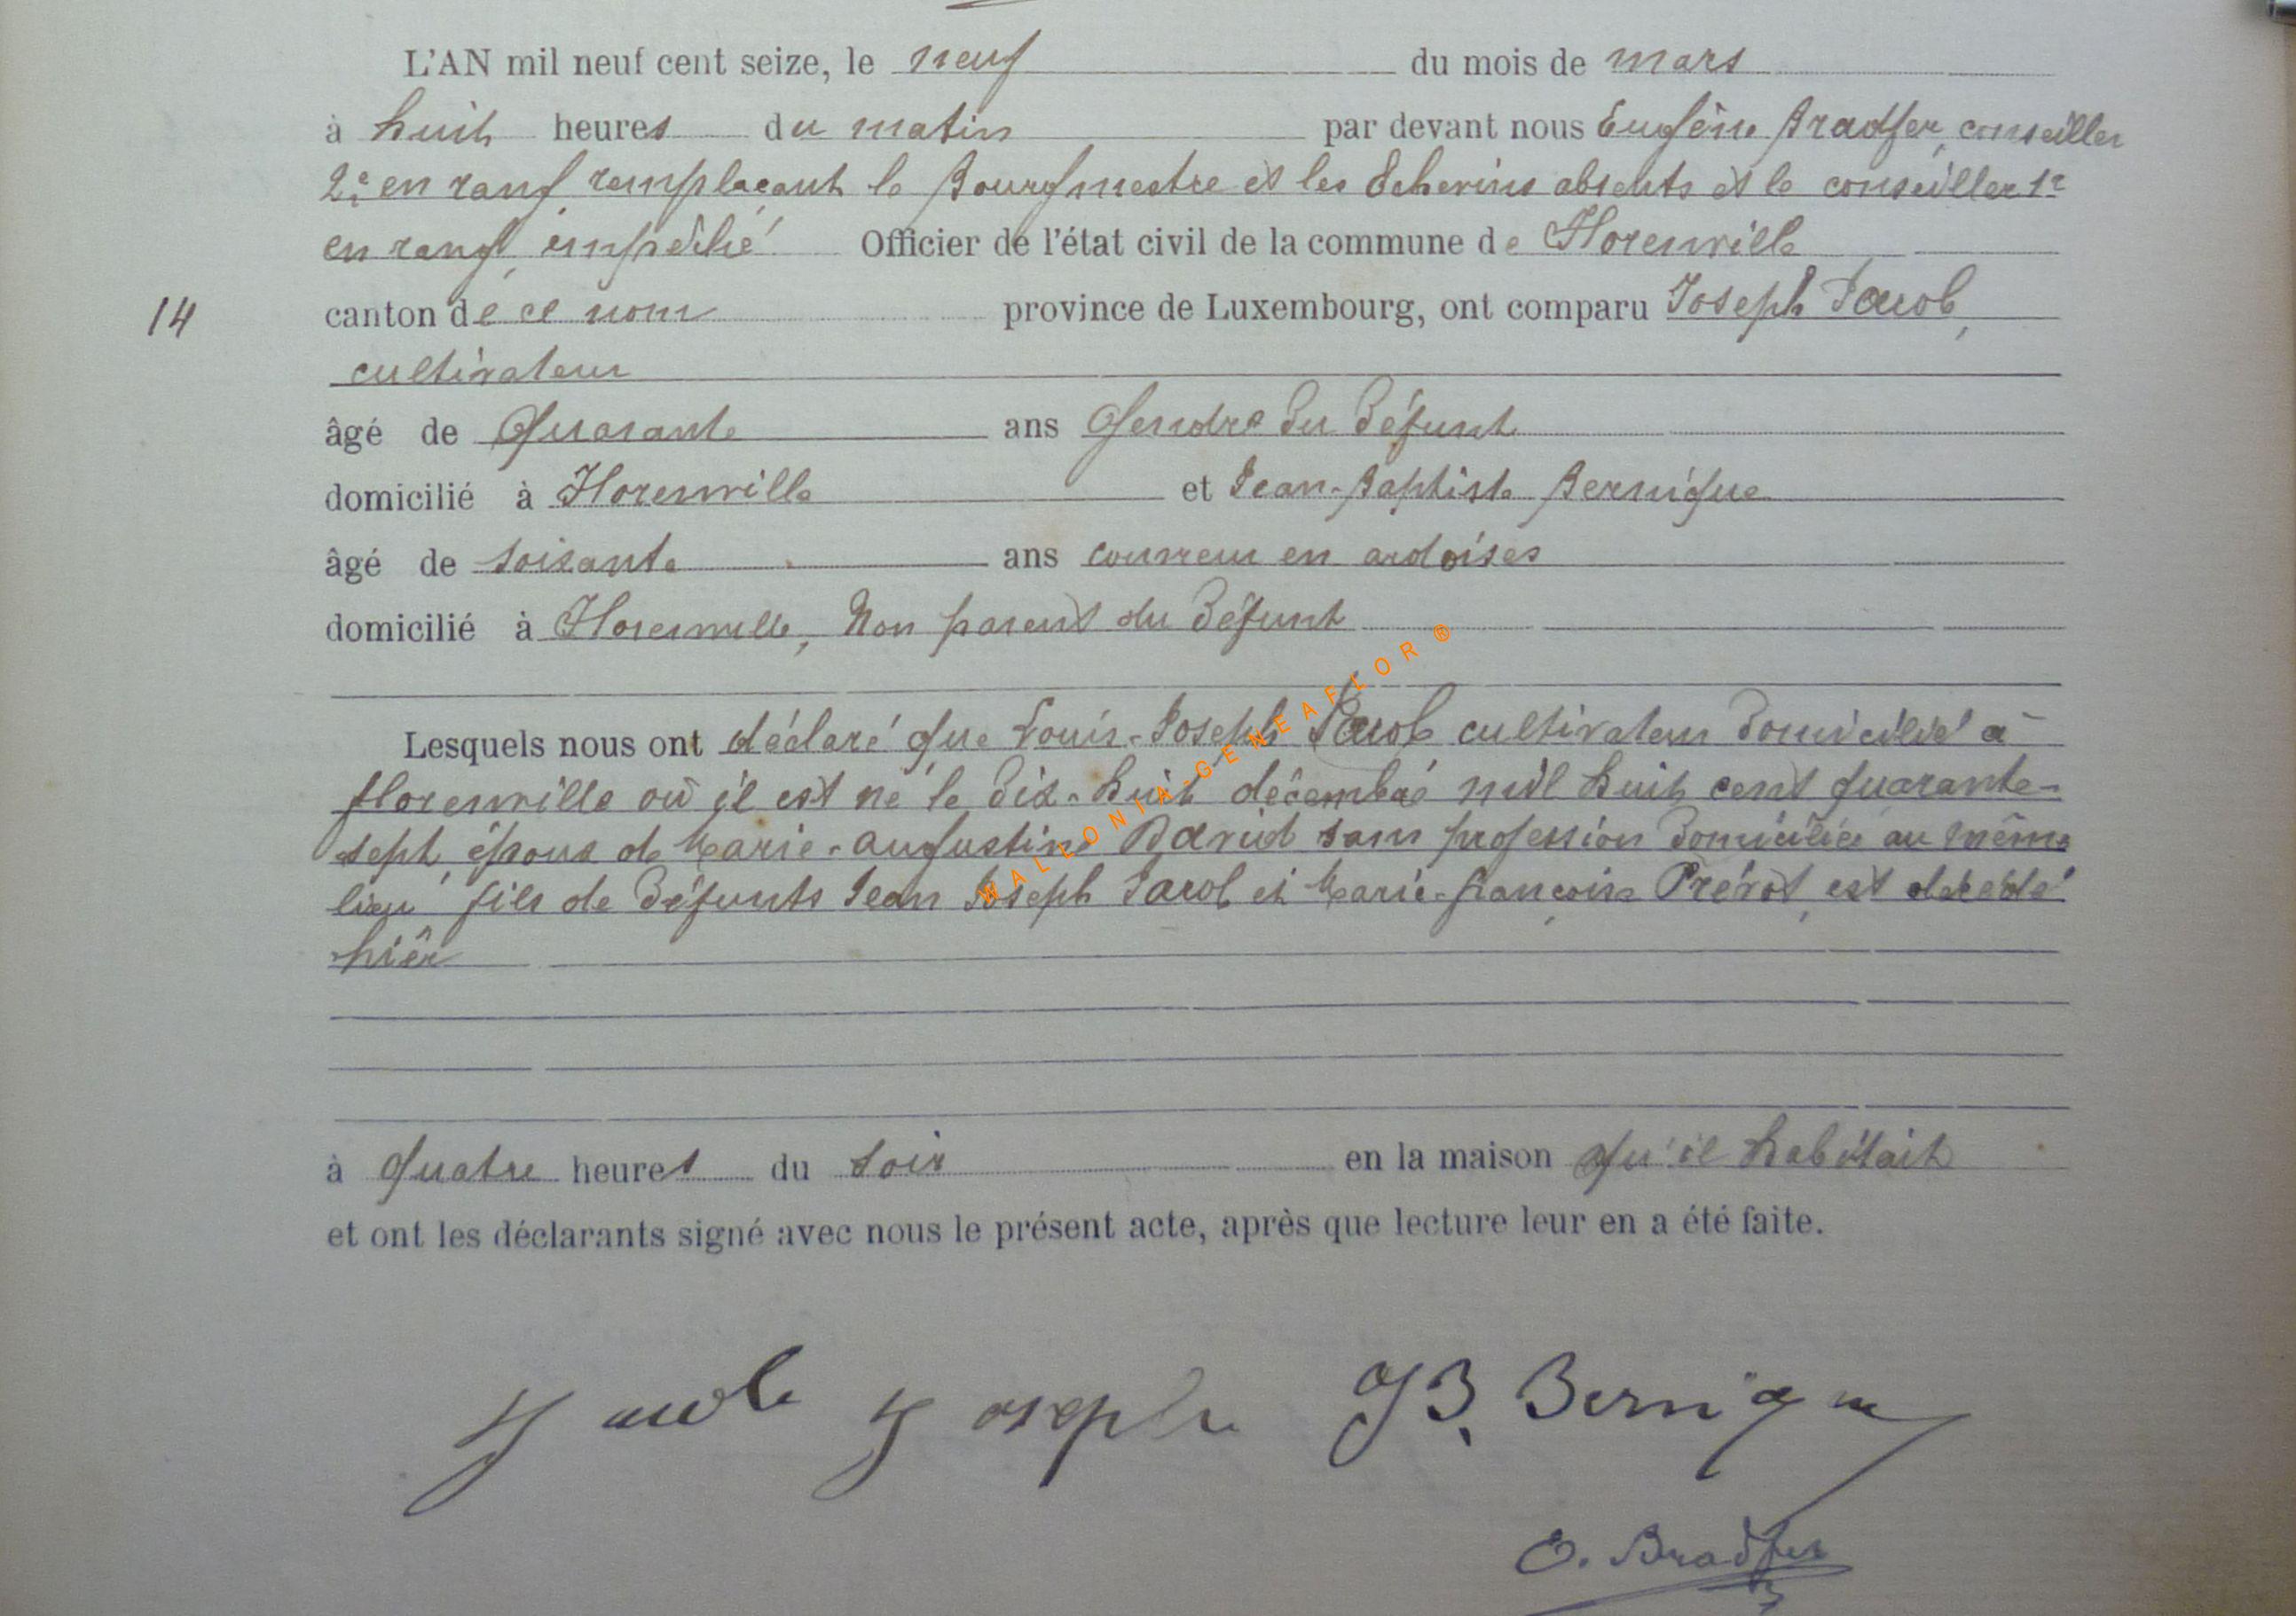 L'AN mil neuf cent seize, le neuf du mois de mars
à huit heures du matin par devant nous Eugène Bradfer, conseiller
2e en rang remplaçant le Bourgmestre et les Echevins absents et le conseiller 1r
en rang, empêché Officier de l'état civil de la commune de Florenville
14 canton de ce nom province de Luxembourg, ont comparu Joseph Jacob,
cultivateur
âgé de Quarante ans Gendre du Défunt
domicilié à Florenville et Jean-Baptiste Bernique
âgé de soixante ans couvreur en ardoises
domicilié à Florenville, Non parent du Défunt
Lesquels nous ont déclaré que Louis-Joseph Jacob cultivateur Domicilié à
florenville où il est né le Dix-huit décembre mil huit cent quarante-
sept, époux de Marie-augustine David sans profession Domiciliée au même
lieu fils de Défunts Jean Joseph Jacob et Marie-françoise Prévot, est décédé
hier
à quatre heures du soir en la maison qu'il habitait
et ont les déclarants signé avec nous le présent acte, après que lecture leur en a été faite.
Jacob Joseph JB. Bernique
E. Bradfer
WALLONIA-GENEAFLOR ®